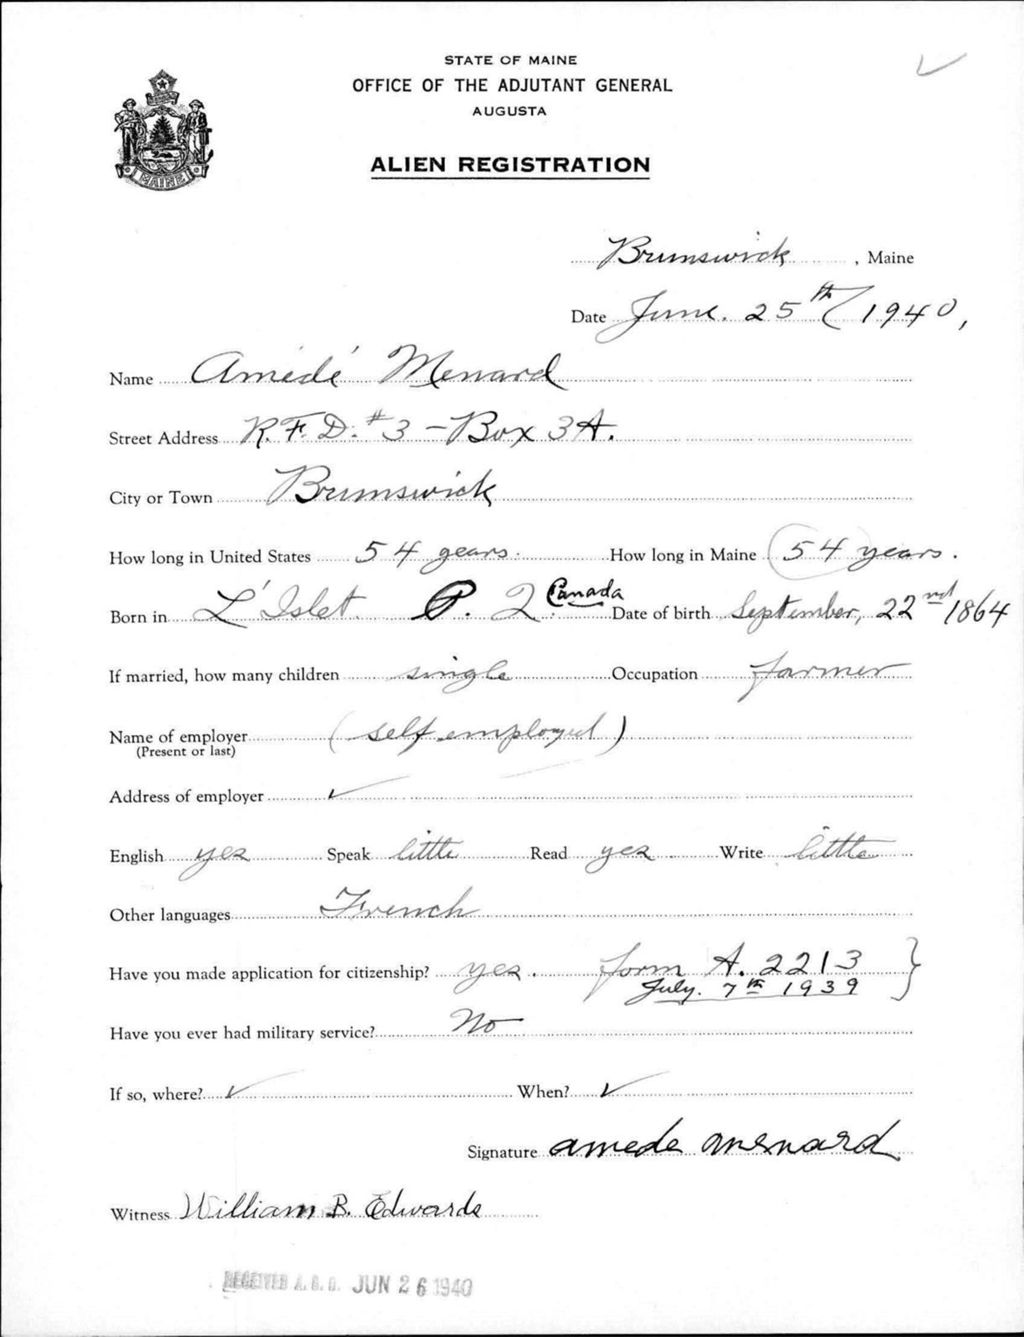 STATE OF MAINE
OFFICE OF THE ADJUTANT GENERAL
AUGUSTA
ALIEN REGISTRATION
MAINE
Brunswick, Maine
Date June. 25th/1940,
Name Amédé Menard
Street Address R.F.D. #3 - Box 3A.
City or Town Brunswick
How long in United States 54 years. How long in Maine 54 years.
Born in L'Islet P. Q. Canada Date of birth September, 22nd 1864
If married, how many children single Occupation farmer
Name of employer (self employed)
(Present or last)
Address of employer ✓
English yes Speak little Read yes Write little
Other languages French
Have you made application for citizenship? yes. form A. 2213
July. 7th 1939
Have you ever had military service? No
If so, where? ✓ When? ✓
Signature amede menard
Witness William B. Edwards
RECEIVED A.G.O. JUN 26 1940